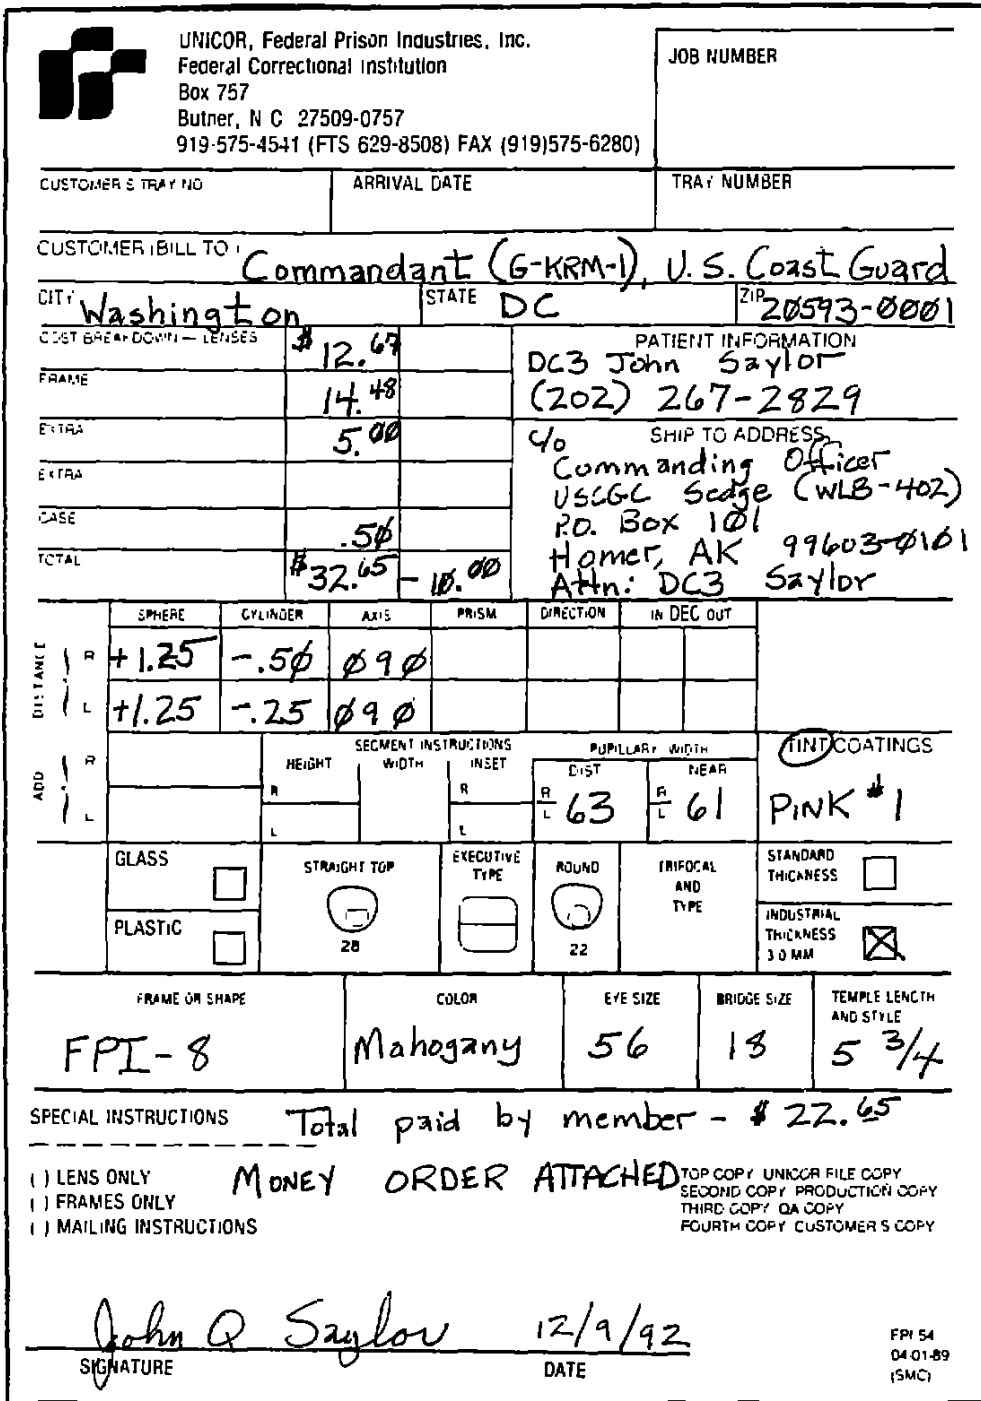 UNICOR, Federal Prison Industries, Inc.
Federal Correctional Institution
Box 757
Butner, N C 27509-0757
919-575-4541 (FTS 629-8508) FAX (919)575-6280)
JOB NUMBER
CUSTOMER S TRAY NO
ARRIVAL DATE
TRAY NUMBER
CUSTOMER (BILL TO) Commandant (G-KRM-1), U.S. Coast Guard
CITY Washington STATE DC ZIP 20593-0001
COST BREAKDOWN — LENSES $12.67
FRAME 14.48
EXTRA 5.00
EXTRA
CASE .50
TOTAL $32.65 - 10.00
PATIENT INFORMATION
DC3 John Saylor
(202) 267-2829
c/o SHIP TO ADDRESS
Commanding Officer
USCGC Sedge (WLB-402)
P.O. Box 101
Homer, AK 99603-0101
Attn: DC3 Saylor
SPHERE CYLINDER AXIS PRISM DIRECTION IN DEC OUT
DISTANCE
R +1.25 -.50 090
L +1.25 -.25 090
ADD
R
L
SEGMENT INSTRUCTIONS
HEIGHT WIDTH INSET
R R
L L
PUPILLARY WIDTH
DIST NEAR
R/L 63 R/L 61
TINT COATINGS
PINK #1
GLASS
PLASTIC
STRAIGHT TOP
28
EXECUTIVE
TYPE
ROUND
22
TRIFOCAL
AND
TYPE
STANDARD
THICKNESS
INDUSTRIAL
THICKNESS
3.0 MM
FRAME OR SHAPE COLOR EYE SIZE BRIDGE SIZE TEMPLE LENGTH
AND STYLE
FPI-8 Mahogany 56 18 5 3/4
SPECIAL INSTRUCTIONS Total paid by member - $22.65
( ) LENS ONLY
( ) FRAMES ONLY
( ) MAILING INSTRUCTIONS
MONEY ORDER ATTACHED
TOP COPY UNICOR FILE COPY
SECOND COPY PRODUCTION COPY
THIRD COPY QA COPY
FOURTH COPY CUSTOMER S COPY
John Q Saylor 12/9/92
SIGNATURE DATE
FPI 54
04-01-89
(SMC)